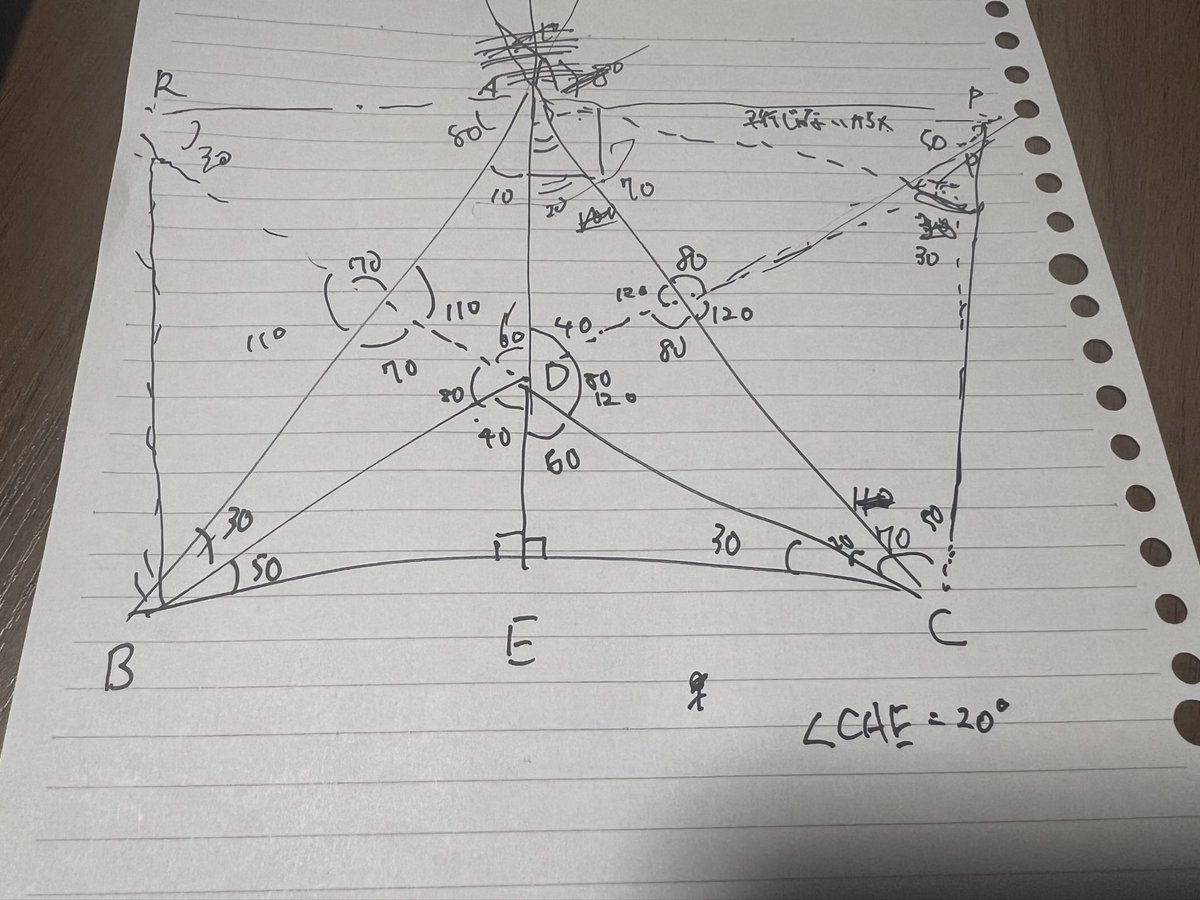 R
A
P
80
30
平行じゃないから×
50
P
10
20
70
30
70
110
110
70
80
120
120
80
60
40
D
80
80
120
40
60
30
50
30
20
70
80
B
E
C
∠CAE = 20°